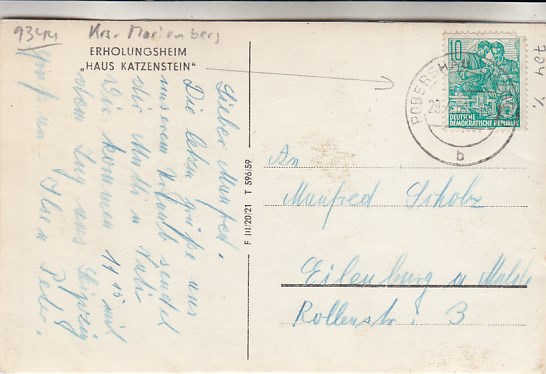 9344 Krs. Marienberg
ERHOLUNGSHEIM
„HAUS KATZENSTEIN"
Lieber Manfred.
Die letzen Grüße aus
unserem Urlaub sendet
dir Mutti u. Vati
Wir kommen 17 15 mit
dem Zug aus Leipzig
Peter.
F III/20/21 T 596/59
POBERSHAU
b
10
DEUTSCHE
DEMOKRATISCHE REPUBLIK
704
An
Manfred Scholz
Eilenburg u Mulde
Rollenstr. 3